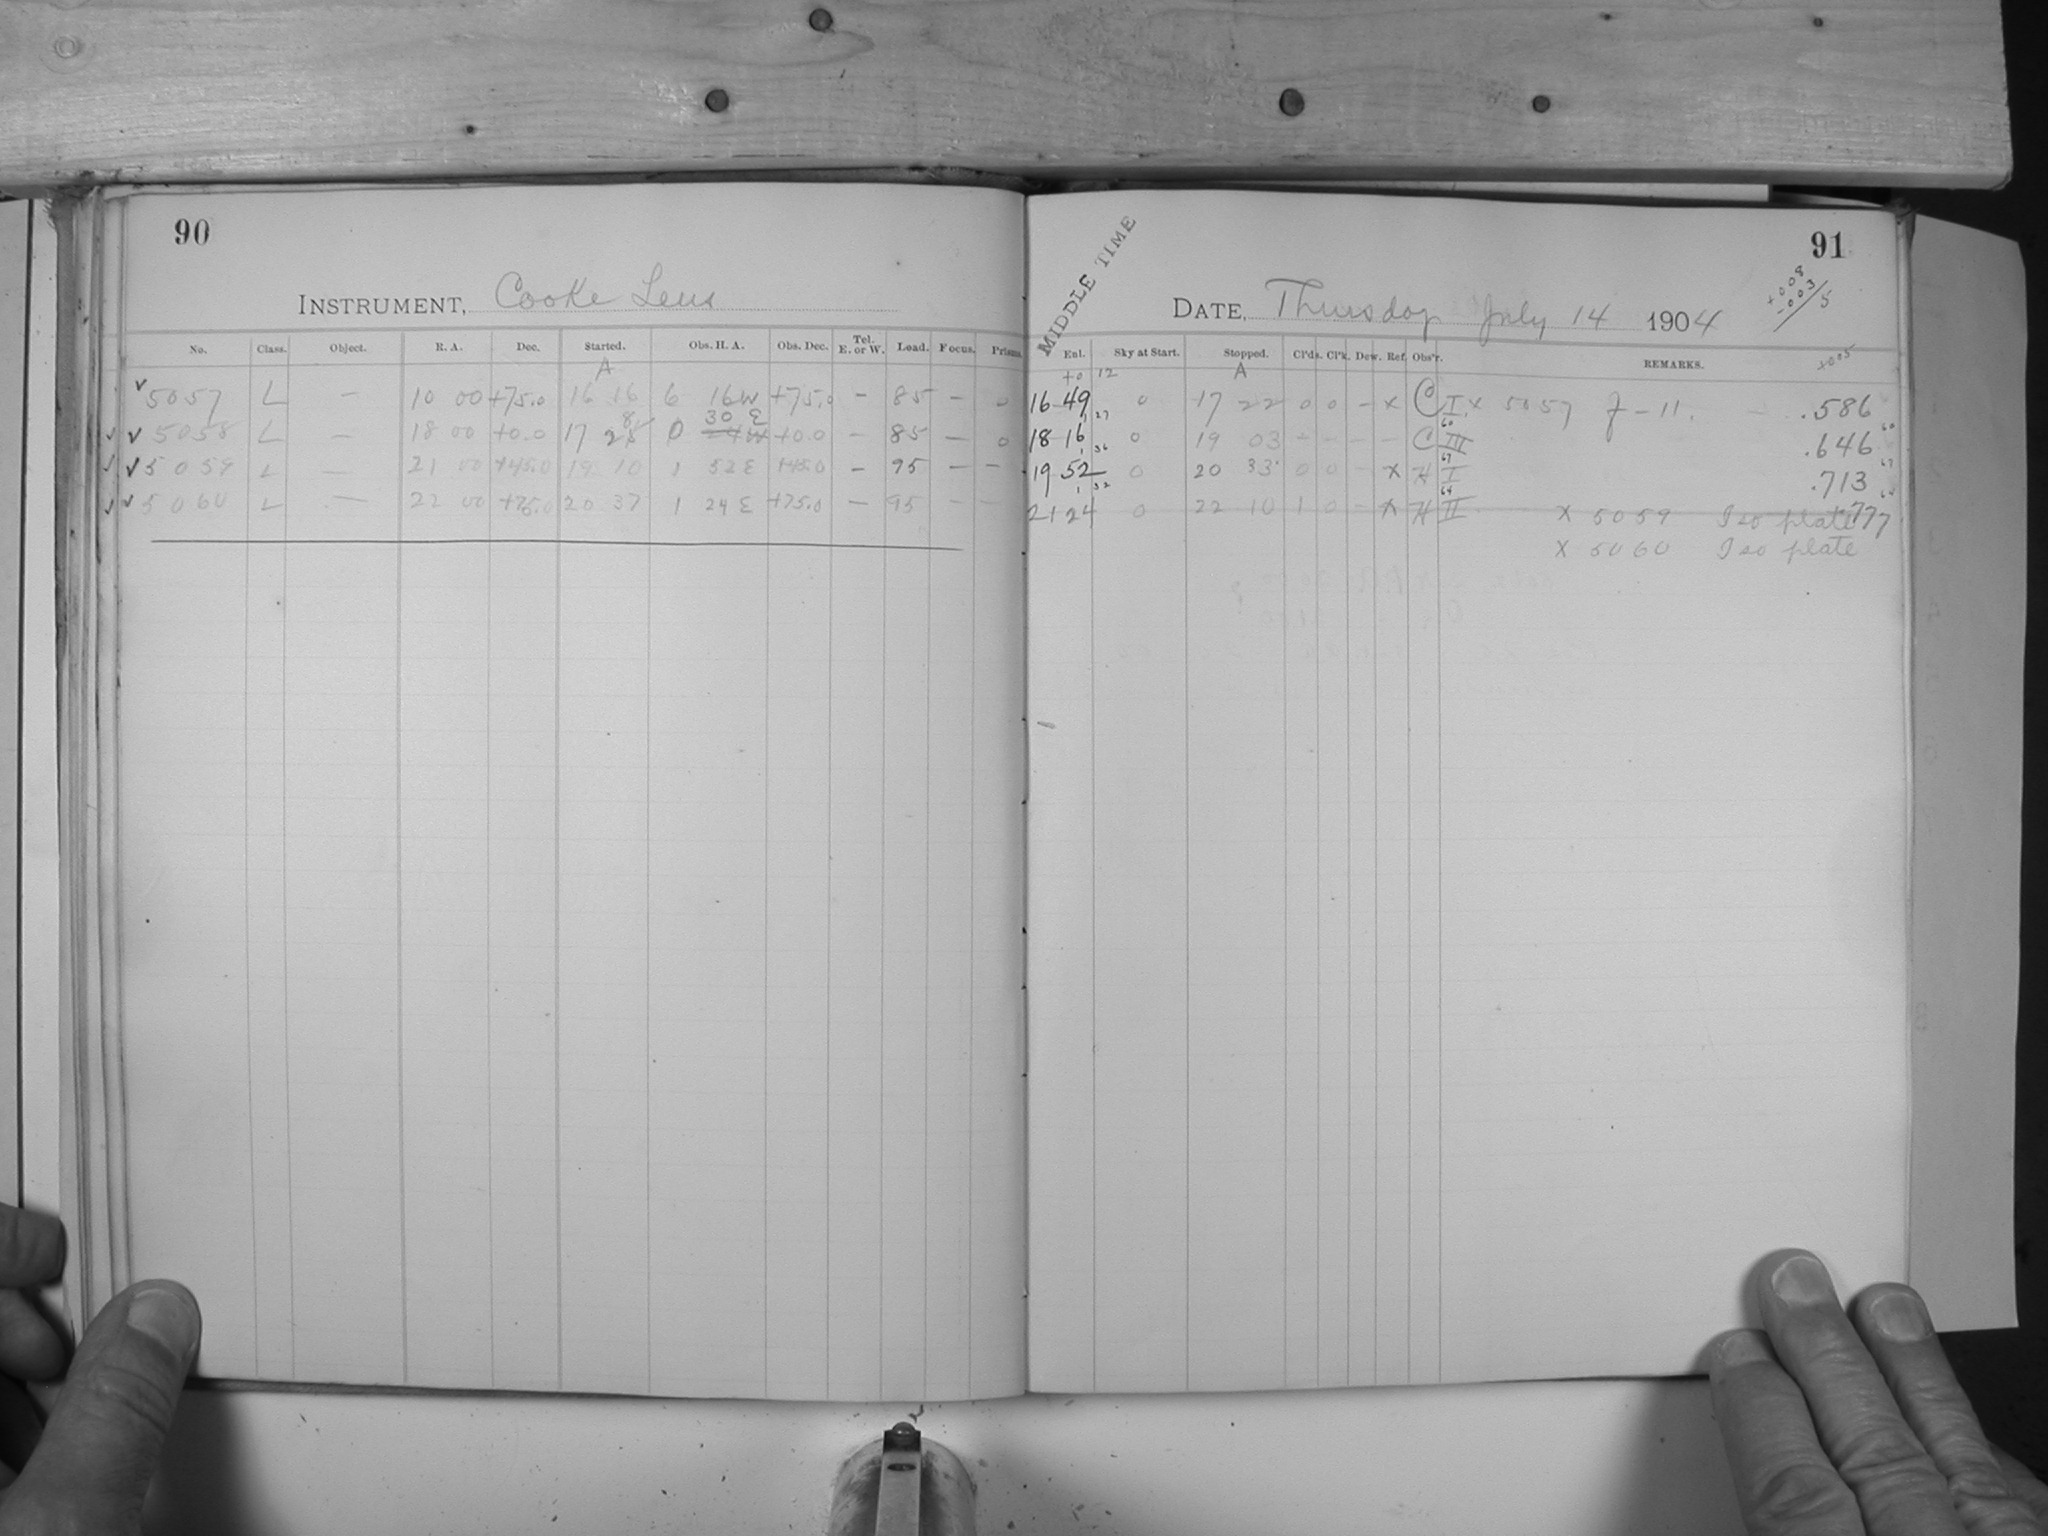 90
INSTRUMENT, Cooke Lens
No. Class. Object. R. A. Dec. Started. Obs. H. A. Obs. Dec. Tel. E. or W. Load. Focus. Prisms.
A
5057 L — 10 00 +75.0 16 16 6 16W +75.0 — 85 — 0
8 30 E
5058 L — 18 00 +0.0 17 28 0 +0.0 — 85 — 0
5059 L — 21 00 +45.0 19 10 1 52 E +45.0 — 95 — —
5060 L — 22 00 +75.0 20 37 1 24 E +75.0 — 95 — —
91
MIDDLE TIME
DATE, Thursday July 14 1904
+008
-003
5
Enl. Sky at Start. Stopped. Cl'ds. Cl'k. Dew. Ref. Obs'r. REMARKS. +005
+0 12 A
16 49 0 17 22 0 0 — x C I x 5057 J - 11. .586
1 27 60 60
18 16 0 19 03 — — — — C III .646
1 36 67 67
19 52 0 20 33 0 0 — x H I .713
1 32 64 64
21 24 0 22 10 1 0 — x H II x 5059 Iso plate .777
x 5060 Iso plate